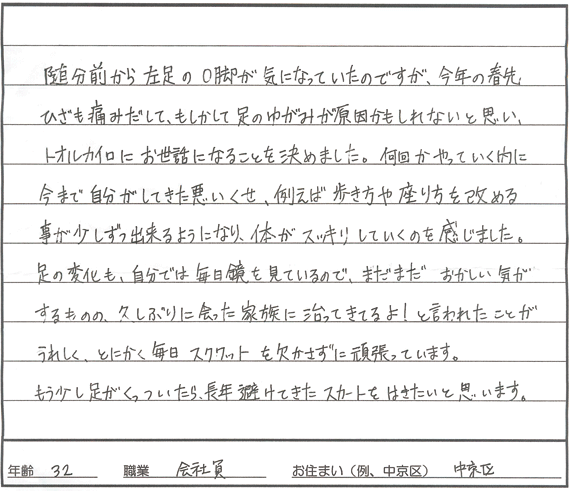 随分前から左足のO脚が気になっていたのですが、今年の春先
ひざも痛みだして、もしかして足のゆがみが原因かもしれないと思い、
トオルカイロにお世話になることを決めました。何回かやっていく内に
今まで自分がしてきた悪いくせ、例えば歩き方や座り方を改める
事が少しずつ出来るようになり、体がスッキリしていくのを感じました。
足の変化も、自分では毎日鏡を見ているので、まだまだおかしい気が
するものの、久しぶりに会った家族に治ってきてるよ!と言われたことが
うれしく、とにかく毎日スクワットを欠かさずに頑張っています。
もう少し足がくっついたら、長年避けてきたスカートをはきたいと思います。
年齢 32 職業 会社員 お住まい(例、中京区) 中京区